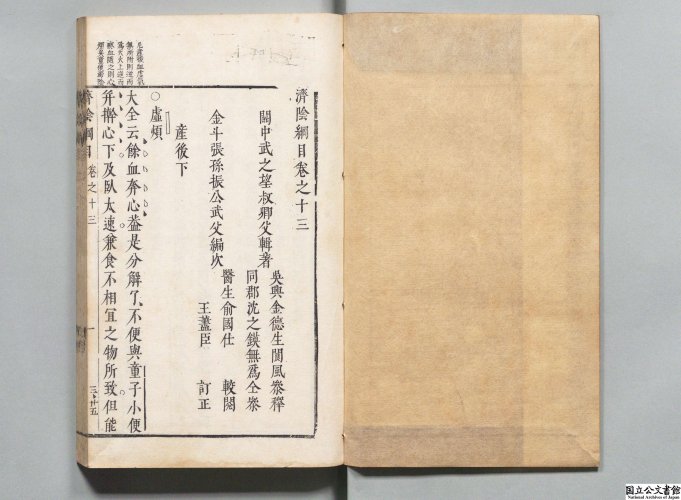 濟陰綱目卷之十三
關中武之望叔卿父輯著
吳興金德生閬風叅釋
同郡沈之鍈無為仝叅
金斗張孫振公武父編次
醫生俞國仕 較閱
王藎臣 訂正
產後下
○虛煩
大全云餘血奔心葢是分觧了不便與童子小便
并擀心下及臥太速兼食不相冝之物所致但能
濟陰綱目 卷之十三 一
國立公文書館
National Archives of Japan